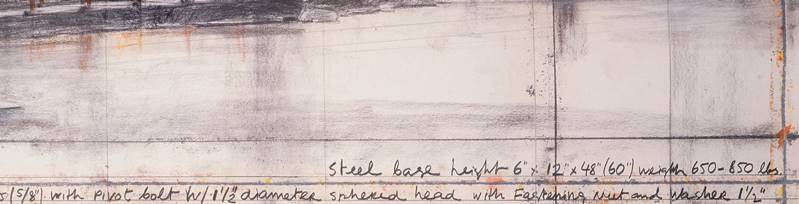 Steel base height 6" x 12" x 48" (60") weigth 650-850 lbs.
(5/8") with pivot bolt W/ 1 1/2" diameter sphered head with Fastening Nut and Washer 1 1/2"